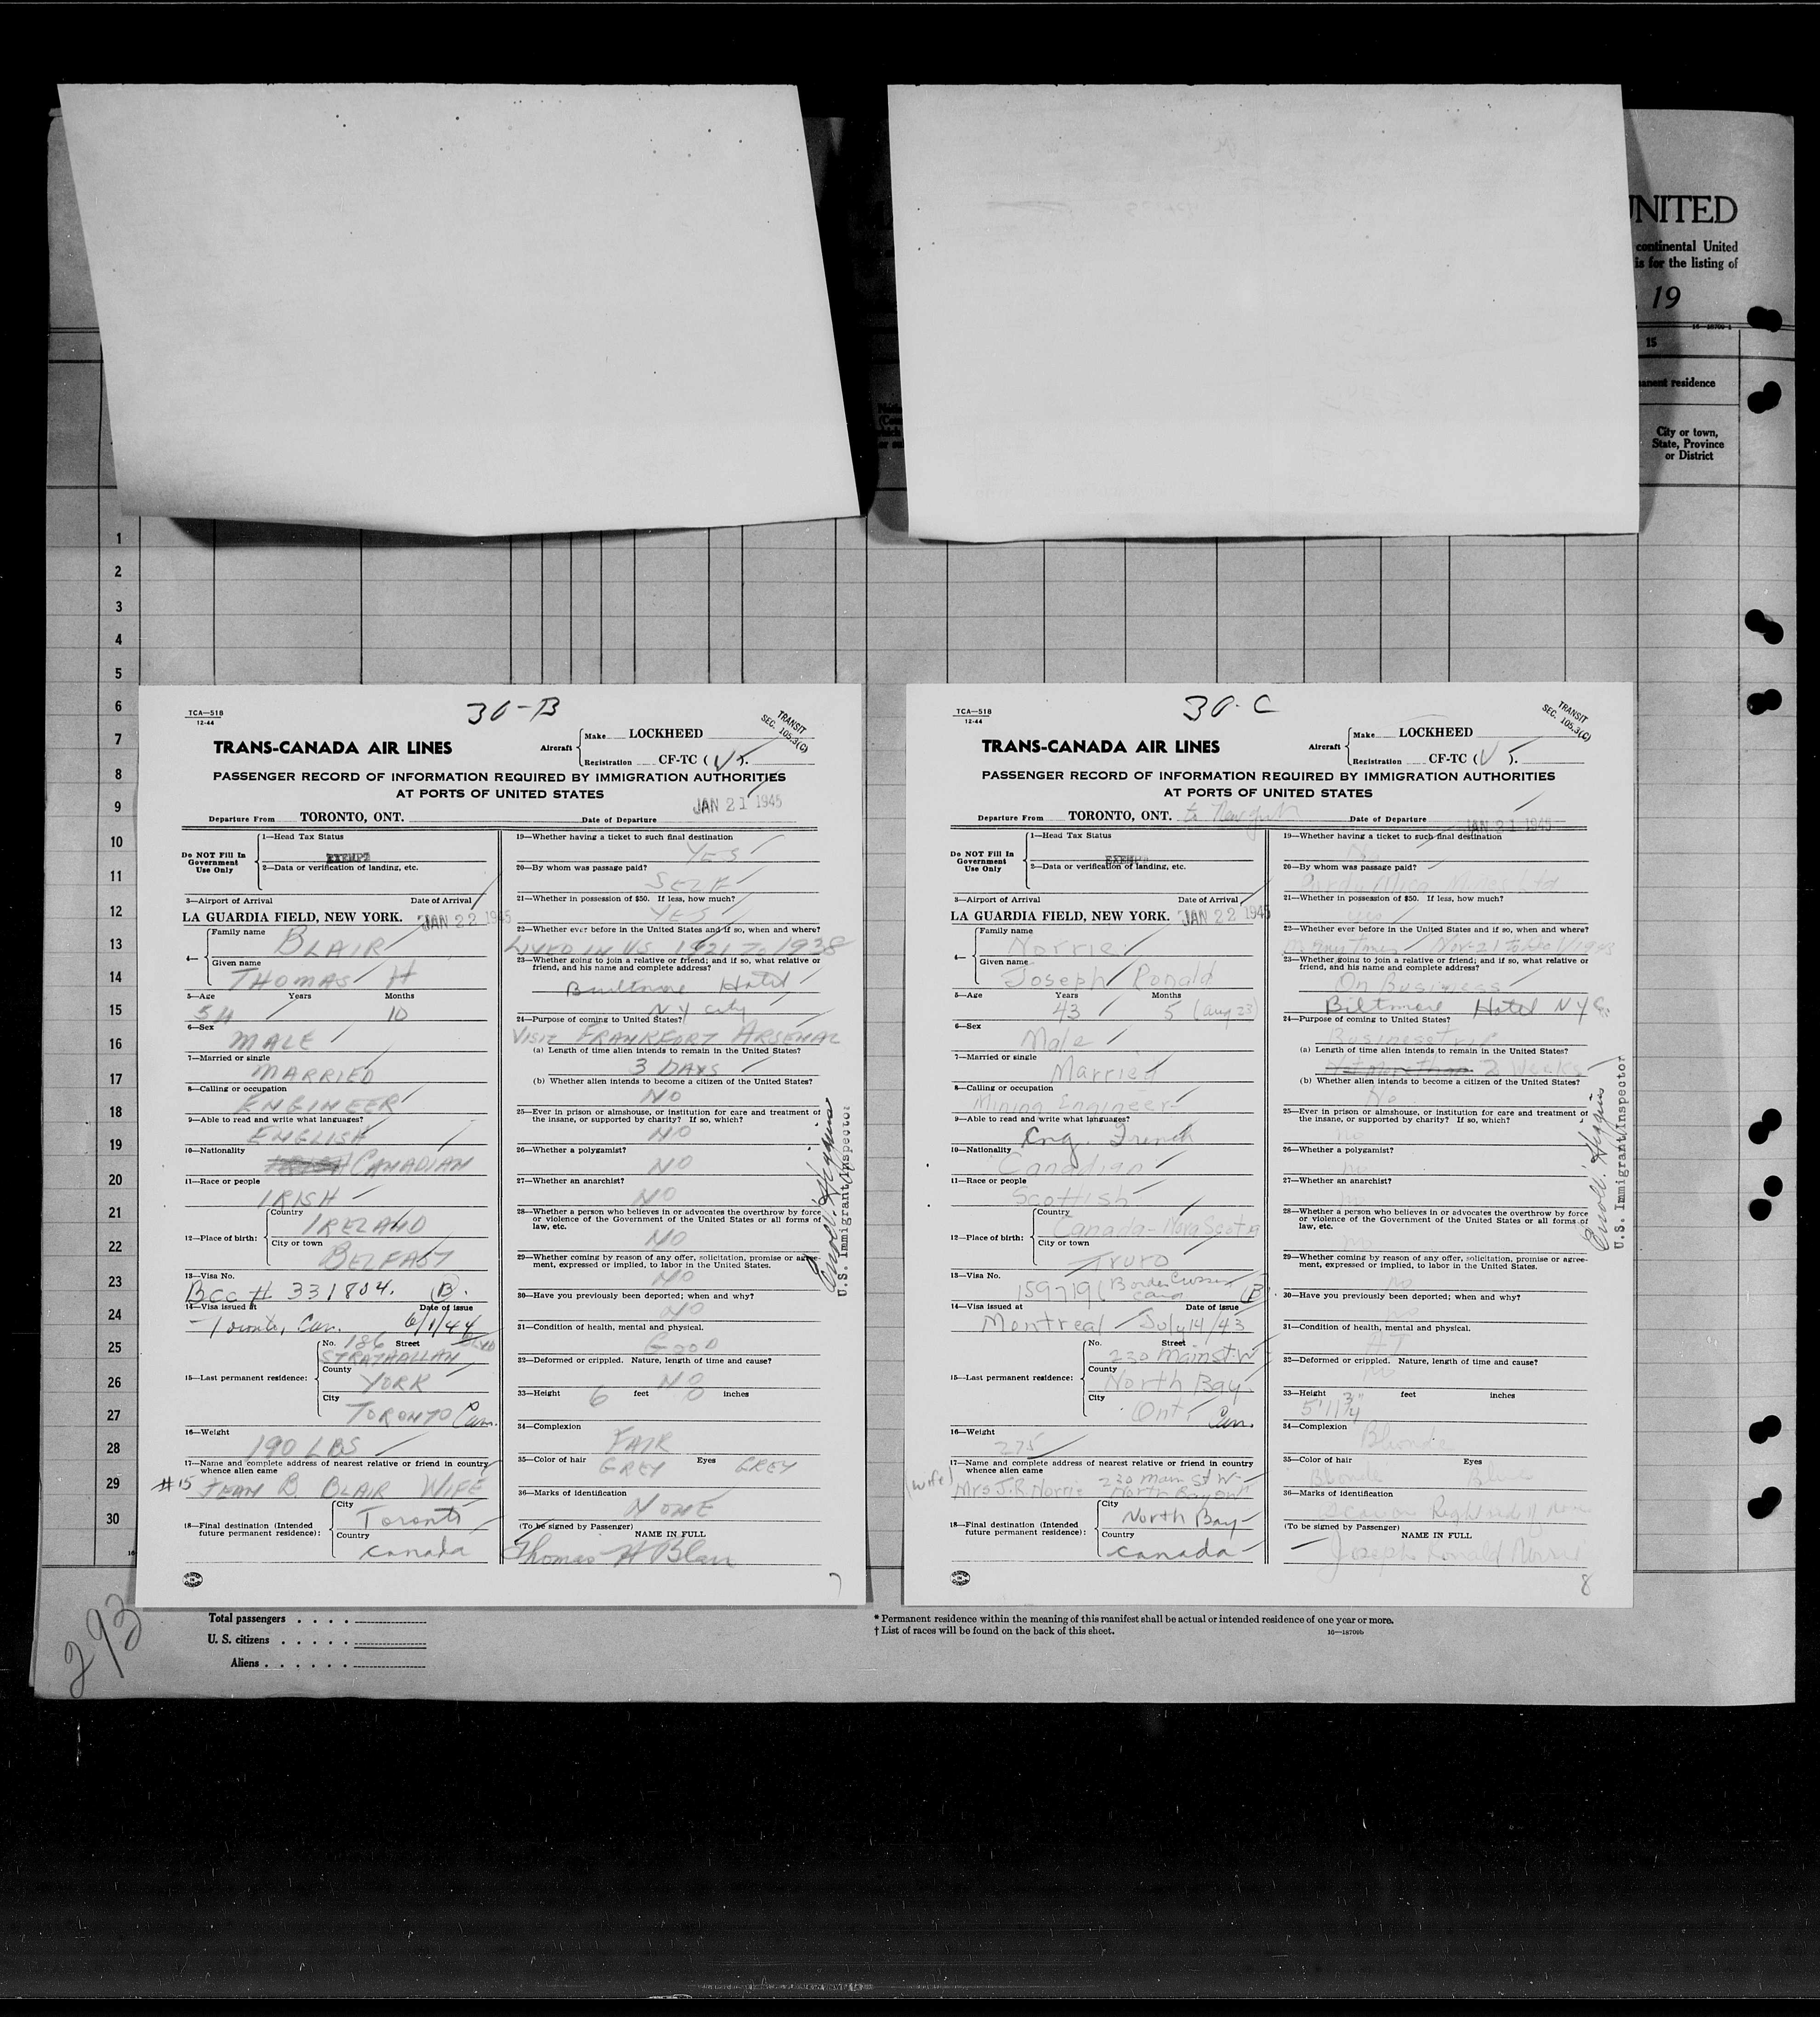 UNITED
continental United
is for the listing of
, 19
16—18709-1
15
manent residence
City or town,
State, Province
or District
1
2
3
4
5
6
7
8
9
10
11
12
13
14
15
16
17
18
19
20
21
22
23
24
25
26
27
28
29
30
30-B
TCA—518
12-44
TRANSIT
SEC. 105.3(C)
TRANS-CANADA AIR LINES
Aircraft
Make LOCKHEED
Registration CF-TC (V).
PASSENGER RECORD OF INFORMATION REQUIRED BY IMMIGRATION AUTHORITIES
AT PORTS OF UNITED STATES
JAN 21 1945
Departure From TORONTO, ONT. Date of Departure
Do NOT Fill In
Government
Use Only
1—Head Tax Status
EXEMPT
2—Data or verification of landing, etc.
3—Airport of Arrival Date of Arrival
LA GUARDIA FIELD, NEW YORK. JAN 22 1945
4—
Family name
BLAIR
Given name
THOMAS H
5—Age Years Months
54 10
6—Sex
MALE
7—Married or single
MARRIED
8—Calling or occupation
ENGINEER
9—Able to read and write what languages?
ENGLISH
10—Nationality
CANADIAN
11—Race or people
IRISH
12—Place of birth:
Country
IRELAND
City or town
BELFAST
13—Visa No.
BCC # 331804. (B).
14—Visa issued at Date of issue
Toronto, Can. 6/1/44
15—Last permanent residence:
No. 186 Street
STRATHALLAN
County
YORK
City
TORONTO Can.
16—Weight
190 LBS
17—Name and complete address of nearest relative or friend in country
whence alien came
#15 JEAN B. BLAIR WIFE
18—Final destination (Intended
future permanent residence):
City
Toronto
Country
Canada
19—Whether having a ticket to such final destination
YES
20—By whom was passage paid?
SELF
21—Whether in possession of $50. If less, how much?
YES
22—Whether ever before in the United States and if so, when and where?
LIVED IN U.S. 1921 TO 1938
23—Whether going to join a relative or friend; and if so, what relative or
friend, and his name and complete address?
Biltmore Hotel
N Y City
24—Purpose of coming to United States?
VISIT FRANKFORT ARSENAL
(a) Length of time alien intends to remain in the United States?
3 DAYS
(b) Whether alien intends to become a citizen of the United States?
NO
25—Ever in prison or almshouse, or institution for care and treatment of
the insane, or supported by charity? If so, which?
NO
26—Whether a polygamist?
NO
27—Whether an anarchist?
NO
28—Whether a person who believes in or advocates the overthrow by force
or violence of the Government of the United States or all forms of
law, etc.
NO
29—Whether coming by reason of any offer, solicitation, promise or agree-
ment, expressed or implied, to labor in the United States.
NO
30—Have you previously been deported; when and why?
NO
31—Condition of health, mental and physical.
GOOD
32—Deformed or crippled. Nature, length of time and cause?
NO
33—Height 6 feet 0 inches
34—Complexion
FAIR
35—Color of hair Eyes
GREY GREY
36—Marks of identification
NONE
(To be signed by Passenger) NAME IN FULL
Thomas H Blair
U.S. Immigrant Inspector
7
30-C
TCA—518
12-44
TRANSIT
SEC. 105.3(C)
TRANS-CANADA AIR LINES
Aircraft
Make LOCKHEED
Registration CF-TC (V).
PASSENGER RECORD OF INFORMATION REQUIRED BY IMMIGRATION AUTHORITIES
AT PORTS OF UNITED STATES
Departure From TORONTO, ONT. to New York Date of Departure JAN 21 1945
Do NOT Fill In
Government
Use Only
1—Head Tax Status
EXEMPT
2—Data or verification of landing, etc.
3—Airport of Arrival Date of Arrival
LA GUARDIA FIELD, NEW YORK. JAN 22 1945
4—
Family name
Norrie
Given name
Joseph Ronald
5—Age Years Months
43 5 (Aug 23)
6—Sex
Male
7—Married or single
Married
8—Calling or occupation
Mining Engineer
9—Able to read and write what languages?
Eng. French
10—Nationality
Canadian
11—Race or people
Scottish
12—Place of birth:
Country
Canada-Nova Scotia
City or town
Truro
13—Visa No.
159719 (Border Crossing Card (B)
14—Visa issued at Date of issue
Montreal July 14/43
15—Last permanent residence:
No. Street
230 Main St. W
County
North Bay.
City
Ont. Can.
16—Weight
275
17—Name and complete address of nearest relative or friend in country
whence alien came
(wife) Mrs J.R. Norrie 230 Main St W
North Bay Ont
18—Final destination (Intended
future permanent residence):
City
North Bay
Country
Canada
19—Whether having a ticket to such final destination
20—By whom was passage paid?
21—Whether in possession of $50. If less, how much?
yes
22—Whether ever before in the United States and if so, when and where?
Many times
23—Whether going to join a relative or friend; and if so, what relative or
friend, and his name and complete address?
On Business
Biltmore Hotel N Y C.
24—Purpose of coming to United States?
Business Trip
(a) Length of time alien intends to remain in the United States?
Not more than 2 Weeks
(b) Whether alien intends to become a citizen of the United States?
No
25—Ever in prison or almshouse, or institution for care and treatment of
the insane, or supported by charity? If so, which?
no
26—Whether a polygamist?
no
27—Whether an anarchist?
no
28—Whether a person who believes in or advocates the overthrow by force
or violence of the Government of the United States or all forms of
law, etc.
no
29—Whether coming by reason of any offer, solicitation, promise or agree-
ment, expressed or implied, to labor in the United States.
no
30—Have you previously been deported; when and why?
no
31—Condition of health, mental and physical.
32—Deformed or crippled. Nature, length of time and cause?
no
33—Height feet inches
5'11 3/4"
34—Complexion
Blonde
35—Color of hair Eyes
Blonde Blue
36—Marks of identification
(To be signed by Passenger) NAME IN FULL
Joseph Ronald Norrie
U.S. Immigrant Inspector
8
293
Total passengers
U. S. citizens
Aliens
* Permanent residence within the meaning of this manifest shall be actual or intended residence of one year or more.
† List of races will be found on the back of this sheet. 16—18709b